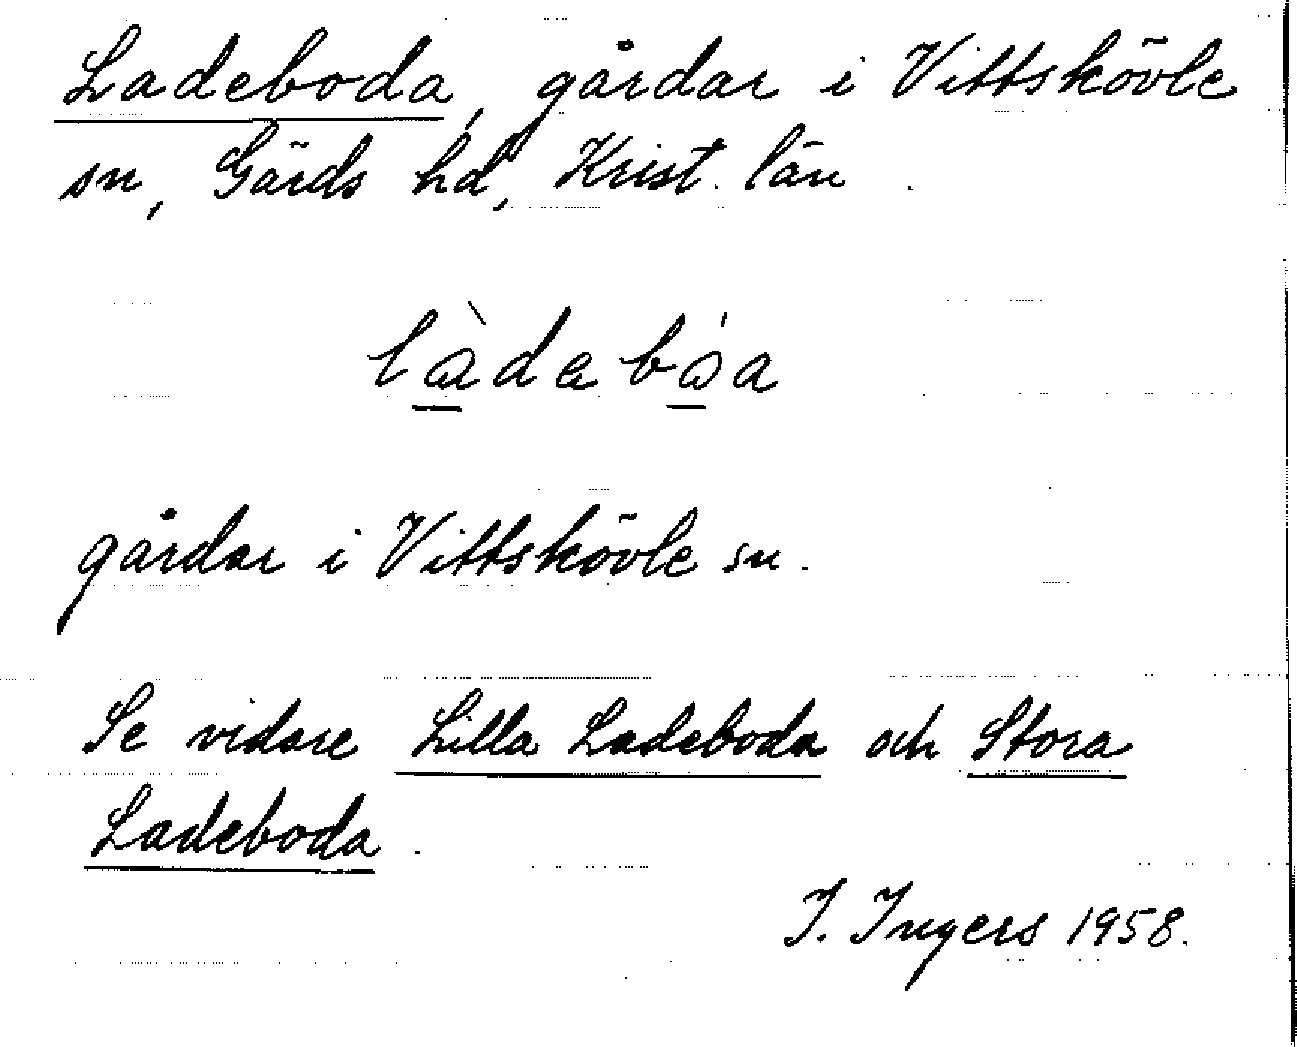 Ladeboda, gårdar i Vittskövle
sn, Gärds hd, Krist. län.
làdebóa
gårdar i Vittskövle sn.
Se vidare Lilla Ladeboda och Stora
Ladeboda.
I. Ingers 1958.